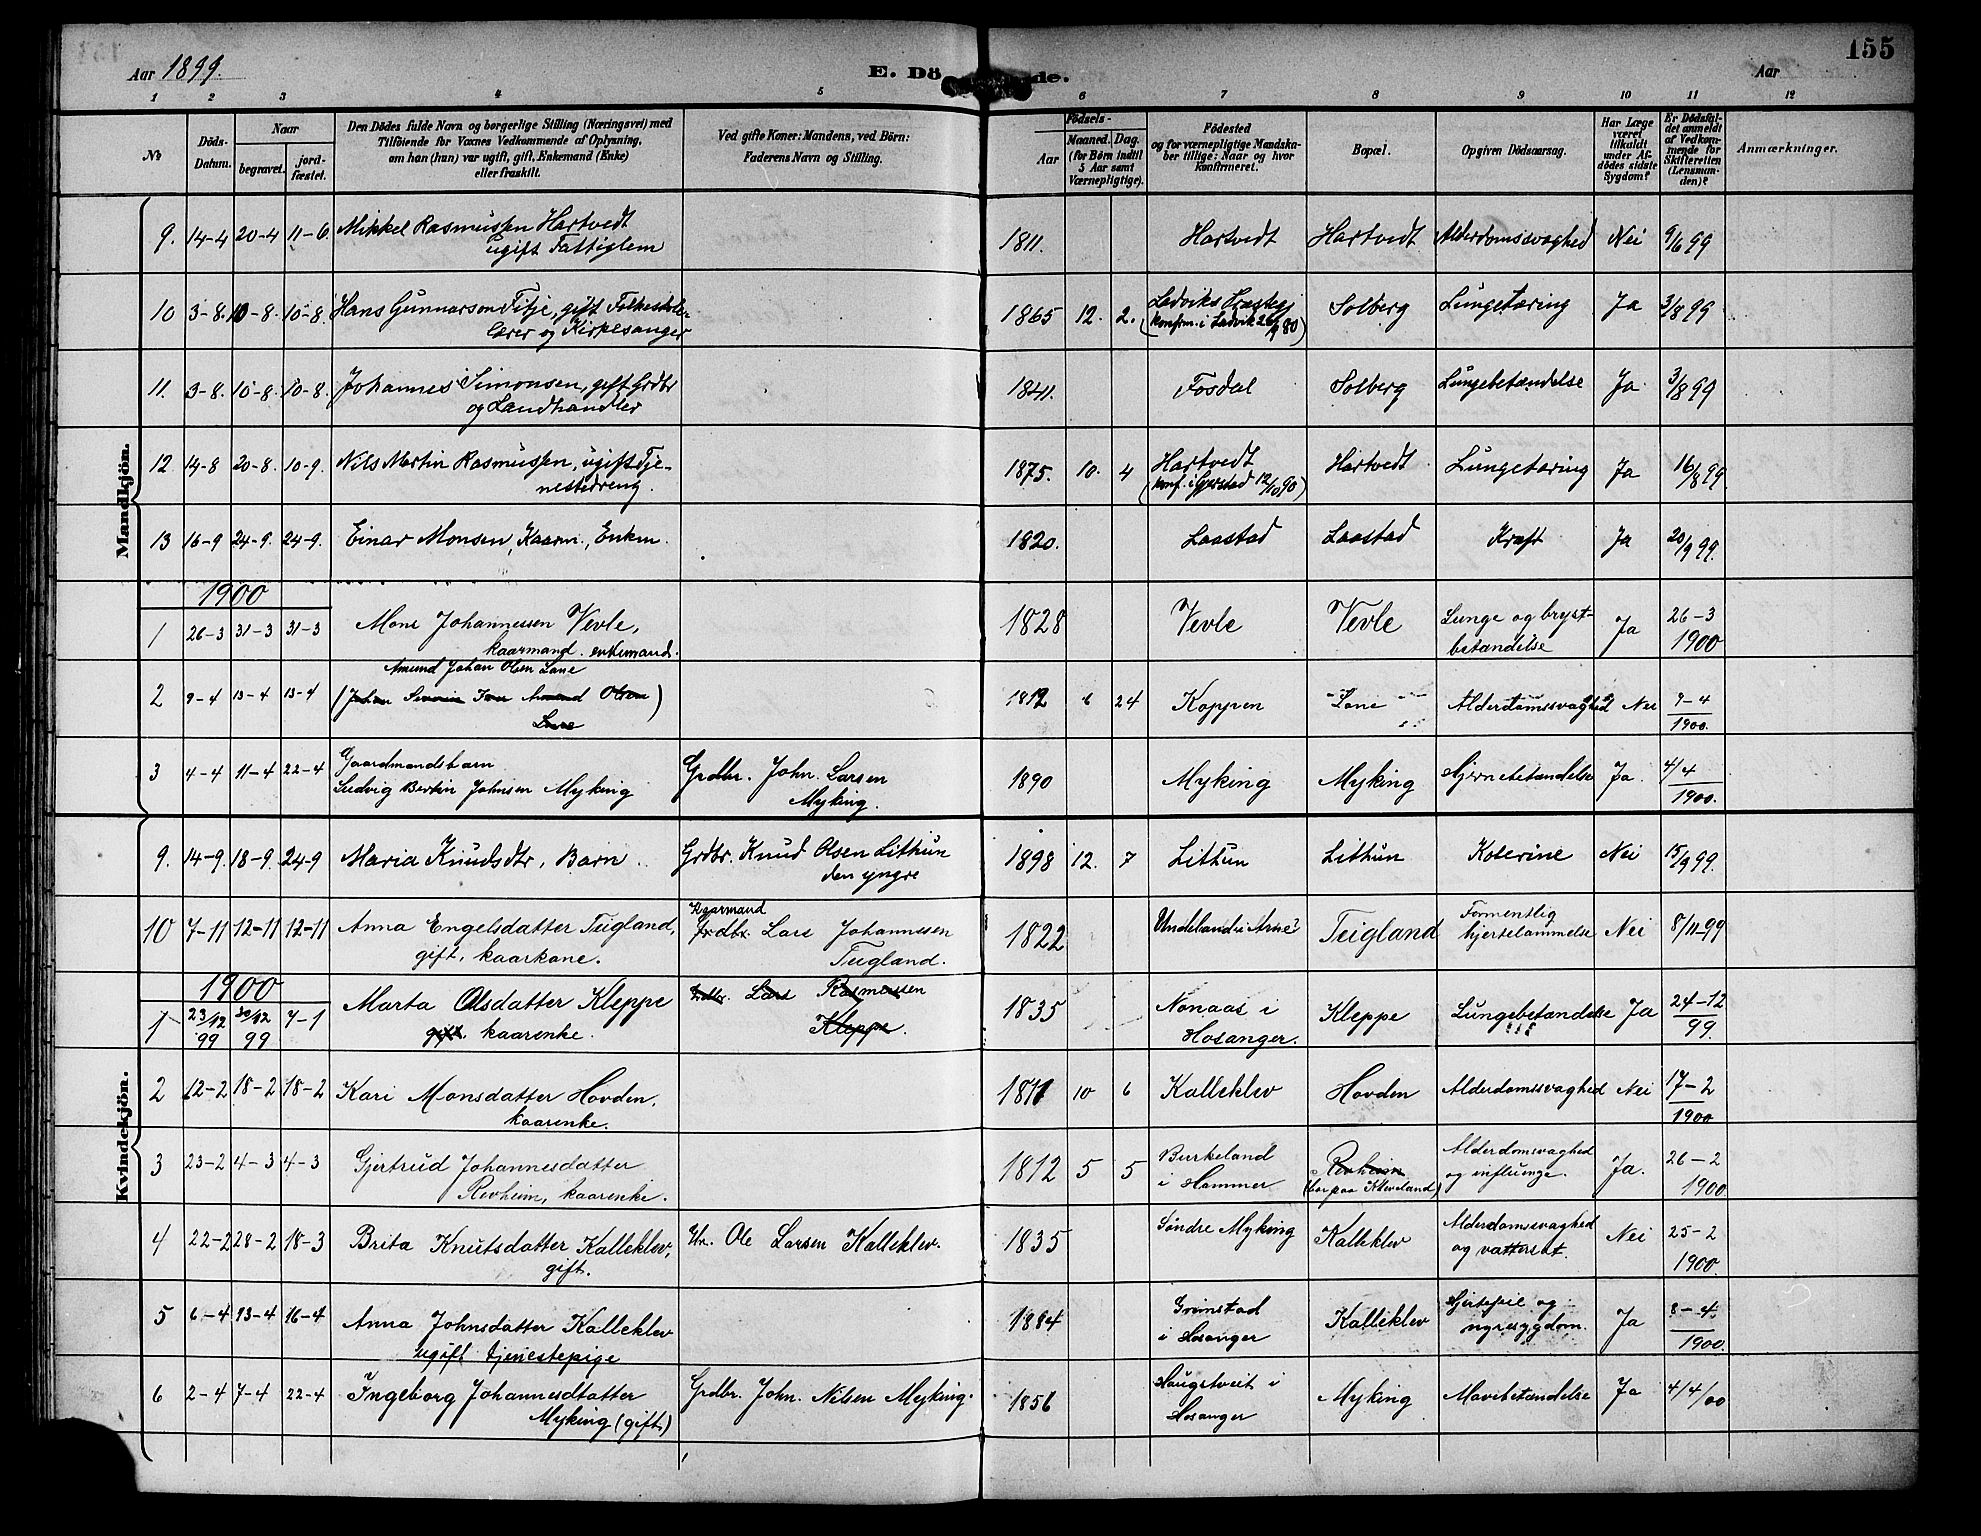 Aar 1899. E. Dö de. Aar 155
1 2 3 4 5 6 7 8 9 10 11 12
No
Döds-Datum.
Naar
begravet.
jord-fæstet.
Den Dödes fulde Navn og borgerlige Stilling (Næringsvei) med
Tilföiende for Voxnes Vedkommende af Oplysning,
om han (hun) var ugift, gift, Enkemand (Enke)
eller fraskilt.
Ved gifte Koner: Mandens, ved Börn:
Faderens Navn og Stilling.
Födsels-
Aar
Maaned. Dag.
(for Börn indtil
5 Aar samt
Værnepligtige).
Födested
og for værnepligtige Mandska-
ber tillige: Naar og hvor
konfirmeret.
Bopæl.
Opgiven Dödsaarsag.
Har Læge
været
tilkaldt
under Af-
dödes sidste
Sygdom?
Er Dödsfal-
det anmeldt
af Vedkom-
mende for
Skifteretten
(Lensman-
den)?
Anmærkninger.
Mandkjön.
9. 14-4 20-4 11-6 Mikkel Rasmussen Hartvedt 1811. Hartvedt Hartvedt Alderdomssvaghed Nei 9/6 99
ugift Fattiglem
10 3-8. 10-8. 10-8. Hans Gunnarson Titje, gift Folkeskole- 1865 12. 2. Ladviks Prægtegj Solberg Lungetæring Ja 3/8 99
lærer og Kirkesanger (konfirm. i Ladvik 26/9 80)
11. 3-8. 10-8. 10-8. Johannes Simonsen, gift Grdbr 1841. Fosdal Solberg Lungebetændelse Ja. 3/8 99
og Landhandler
12. 14-8 20-8. 10-9. Nils Martin Rasmussen, ugift Tje- 1875. 10. 4 Hartvedt Hartvedt Lungetæring Ja 16/8 99
nestedreng. (konf. i Gjerstad 12/10 90)
13 16-9 24-9. 24-9. Einar Monsen, Kaarm., Enkem. 1820. Laastad Laastad Kræft Ja 20/9 99.
1900
1 26-3 31-3 31-3 Mons Johannessen Vevle, 1828 Vevle Vevle Lunge og bryst- Ja 26-3
kaarmand. enkemand. betændelse 1900
Amund Johan Olsen Lone
2 9-4 13-4 13-4 (Johan Severin Amund Olsen) 1812 6 24 Koppen Lone Alderdomssvaghed Nei 9-4
Lone 1900.
3 4-4 11-4 22-4 Gaardmandsbarn Grdbr. John. Larsen 1890 Myking Myking Hjernebetændelse Ja. 4/4
Ludvig Bertin Johnsen Myking Myking. 1900.
Kvindekjön.
9. 14-9. 18-9. 24-9 Maria Knudsdtr, Barn. Grdbr. Knud Olsen Lithun 1898 12. 7 Lithun Lithun Kolerine Nei 15/9 99.
den yngre
Kaarmand
10 7-11 12-11 12-11 Anna Engelsdatter Teigland, Grdbr. Lars Johannessen 1822 Undeland i Arne? Teigland Formentlig Nei 8/11-99
gift, kaarkone. Teigland. hjertelammelse
1900
1 23/12 99 30/12 99 7-1 Marta Olsdatter Kleppe Grdbr. Lars Rasmussen 1835 Nonaas i Kleppe Lungebetændelse Ja 24-12
gift. kaarenke. Kleppe. Hosanger. 99.
2 12-2 18-2 18-2 Kari Monsdatter Hovden, 1811 10 6 Kalleklev Hovden Alderdomssvaghed Nei 17-2
kaarenke. 1900
3 23-2 4-3 4-3 Gjertrud Johannesdatter 1812 5 5 Birkeland Revheim Alderdomsvaghed Ja. 26-2
Revheim, kaarenke. i Hammer (bor paa Kleveland) og influenze. 1900
4 22-2 28-2 18-3 Brita Knutsdatter Kalleklev, Ole Larsen Kalleklev. 1835 Søndre Myking Kalleklev Alderdomsvaghed Nei 25-2
gift. og vattersot. 1900.
5 6-4 13-4 16-4 Anna Johnsdatter Kalleklev 1884 Grimstad Kalleklev Hjertefeil og Ja 8-4
ugift tjenestepige i Hosanger nyresygdom. 1900.
6 2-4 7-4 22-4 Ingeborg Johannesdtatter Grdbr. John. Nilsen Myking. 1856 Haugstveit i Myking Mavebetændelse Ja 4/4/00
Myking (gift) Hosanger